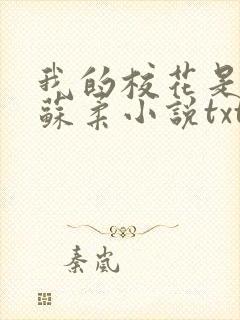 我的校花是
蘇柔小說txt
秦嵐